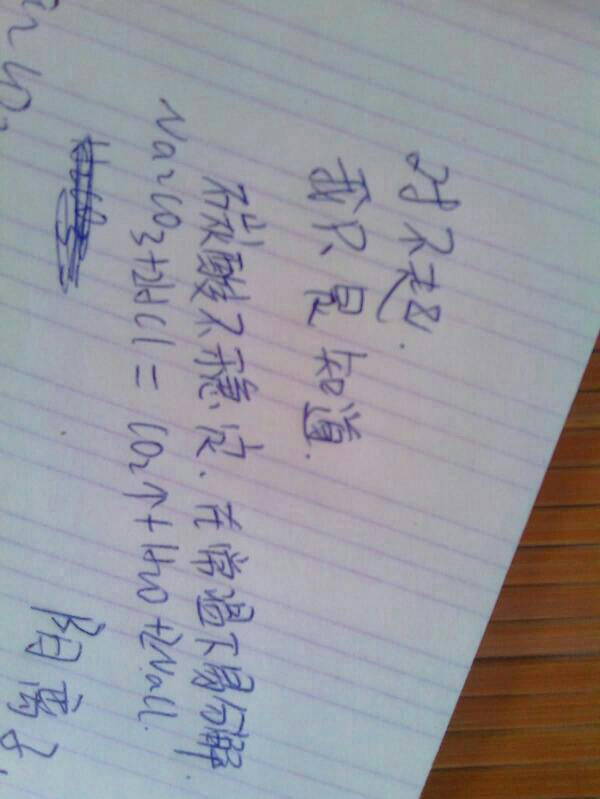 对不起.
我只是知道.
碳酸不稳定.在常温下易分解
Na2CO3+2HCl = CO2↑+H2O+2NaCl.
阳离子.